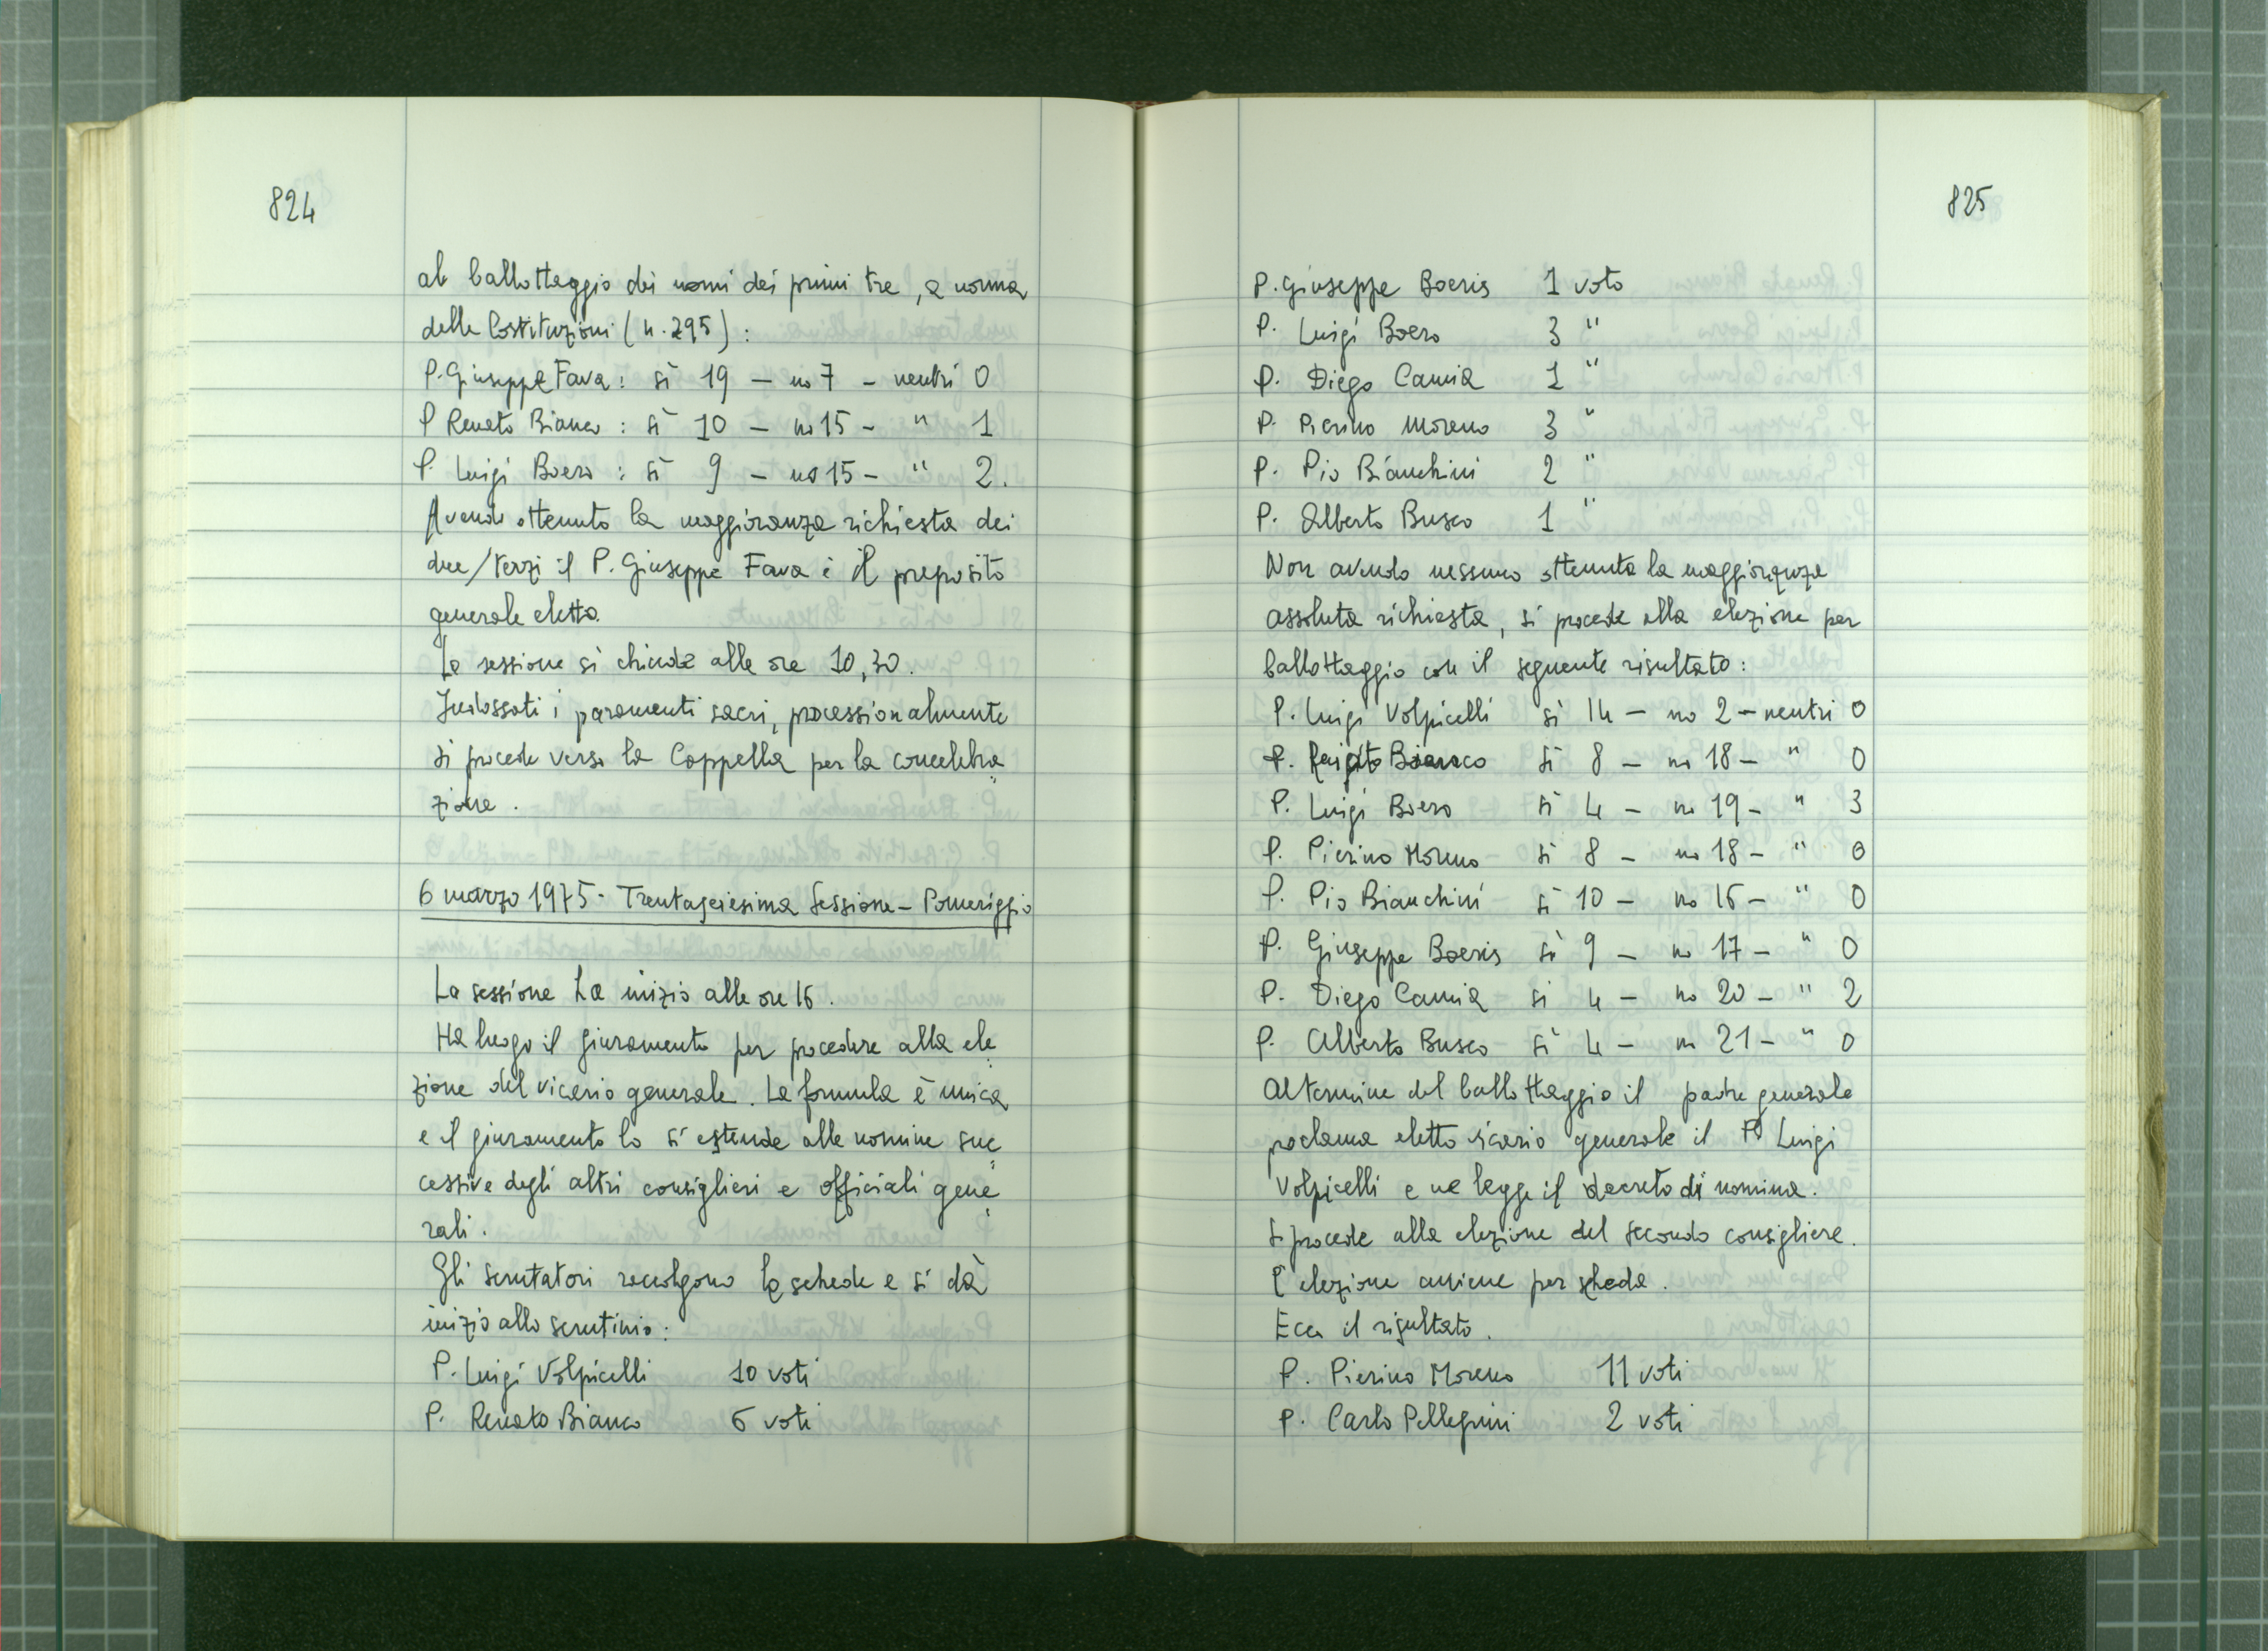 824
al ballottaggio dei nomi dei primi tre, a norma
delle Costituzioni (n. 295):
P. Giuseppe Fava: sì 19 — no 7 — neutri 0
P Renato Bianco: sì 10 — no 15 — " 1
P. Luigi Boero: sì 9 — no 15 — " 2.
Avendo ottenuto la maggioranza richiesta dei
due/terzi il P. Giuseppe Fava è il preposito
generale eletto.
La sessione si chiude alle ore 10,30.
Indossati i paramenti sacri, processionalmente
si procede verso la Cappella per la concelebra
zione.
6 marzo 1975 - Trentaseiesima Sessione - Pomeriggio
La sessione ha inizio alle ore 16.
Ha luogo il giuramento per procedere alla ele
zione del vicario generale. La formula è unica
e il giuramento lo si estende alle nomine suc
cessive degli altri consiglieri e officiali gene
rali.
Gli scrutatori raccolgono le schede e si dà
inizio allo scrutinio:
P. Luigi Volpicelli 10 voti
P. Renato Bianco 6 voti
825
P. Giuseppe Boeris 1 voto
P. Luigi Boero 3 "
P. Diego Camia 1 "
P. Pierino Moreno 3 "
P. Pio Bianchini 2 "
P. Alberto Busco 1 "
Non avendo nessuno ottenuta la maggioranza
assoluta richiesta, si procede alla elezione per
ballottaggio con il seguente risultato:
P. Luigi Volpicelli sì 14 — no 2 — neutri 0
P. Bianco sì 8 — no 18 — " 0
P. Luigi Boero sì 4 — no 19 — " 3
P. Pierino Moreno sì 8 — no 18 — " 0
P. Pio Bianchini sì 10 — no 16 — " 0
P. Giuseppe Boeris sì 9 — no 17 — " 0
P. Diego Camia sì 4 — no 20 — " 2
P. Alberto Busco sì 4 — no 21 — " 0
Al termine del ballottaggio il padre generale
proclama eletto vicario generale il P. Luigi
Volpicelli e ne legge il decreto di nomina.
Si procede alla elezione del secondo consigliere.
L'elezione avviene per scheda.
Ecco il risultato.
P. Pierino Moreno 11 voti
P. Carlo Pellegrini 2 voti